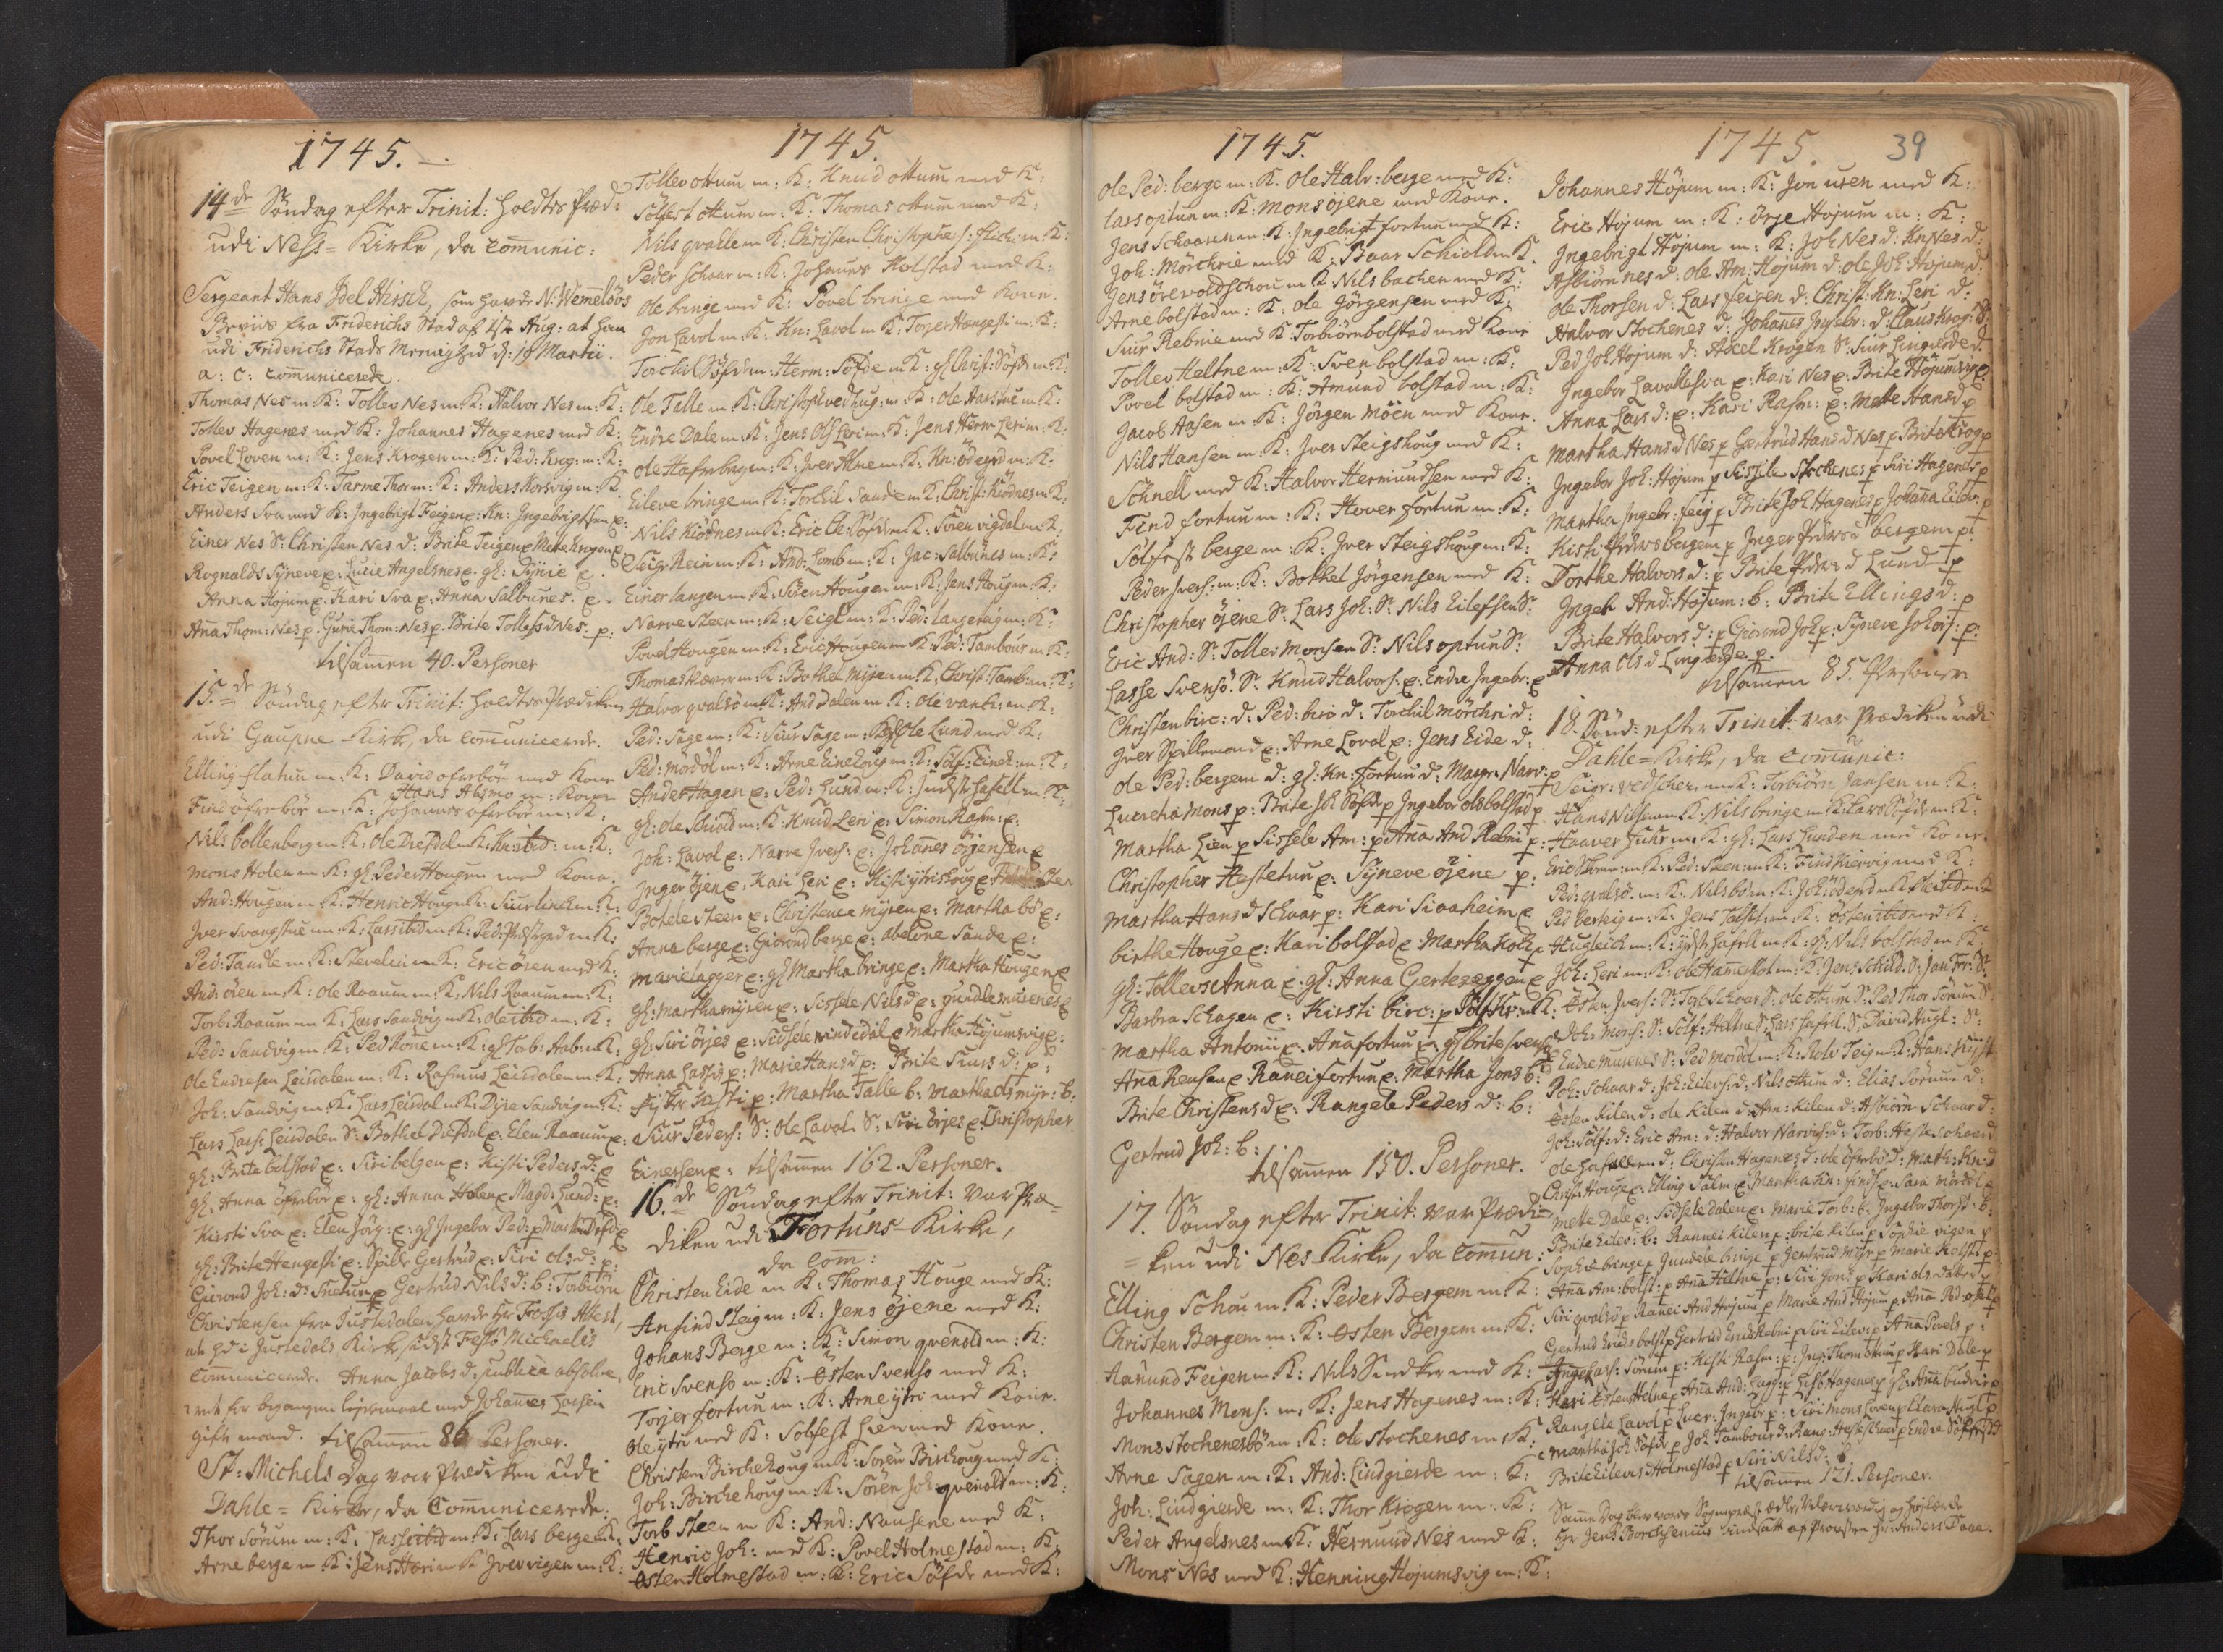 1745.
14de Söndag efter Trinit: holdtes Præd:
udi Ness=Kirke, da communic:
Sergeant Hans Idel Hirsch, som havde N: Wemmelövs
Breviis fra Friderichs Stad af 1ste Aug: at han
udi Friderichs Stads Menighed d: Martii.
a: c: communicerede.
Thomas Nes m: K: Tollev Nes m: K: Halvor Nes m: K:
Tollev Hagenes med K: Johannes Hagenes med K:
Povel Loven m: K: Jens Krogen m: K: Ped: Krog: m: K:
Eric Teigen m: K: Tarme Thor m: K: Anders Korsvig m: K:
Anders Sva med K: Ingebrigt Feigen e: Kn: Ingebrigtsen e:
Einer Nes S: Christen Nes d: Brite Teigen e Mette Krogen e
Rognalds Syneve e: Lucie Angelsnes e: gl: Synie e.
Anna Hojum e: Kari Sva e: Anna Salbunes. e.
Anna Thom: Nes p. Guri Thom: Nes p. Brite Tollefsd Nes. p:
tilsammen 40. Personer
15.de Söndag efter Trinit: holdtes Prædiken
udi Gaupne-Kirke, da communicerede.
Elling flatun m: K: David ofrebör med Kone
Hans Alsmo m: Kone
Find ofrebör m: K: Johannes ofrebör m: K:
Nils bollenberg m: K: Ole Drefdal m: K: Kn: ibid: m: K:
Mons Holen m: K: gl: Peder Hougen med Kone.
And: Hougen m: K: Henric Hougen K: Siur linch m: K:
Iver Svangstue m: K: Lars ibid m: K: Ped: Præstegrd m: K:
Ped: Tandle m: K: Stevelin m: K: Eric ören med K:
And: ören m: K: Ole Raaum m: K: Nils Raaum m: K:
Torb: Raaum m: K: Lars Sandvig m: K: Ole ibid m: K:
Ped: Sandvig m: K: Ped Röne m: K: gl Torb: Aab: m: K:
Ole Endresen Leirdalen m: K: Rasmus Leirdalen m: K:
Joh: Sandvig m: K: Lars Leirdal m: K: Dyre Sandvig m: K:
Lars Lars: Leirdalen S: Bothel Drefdal e: Elen Raaum e:
gl: Brite bolstad e: Siri belgen e: Kisti Peders d: e
gl: Anna ofrebör e: gl: Anna Holen e Magd: Lund: e:
Kirsti Sva e: Elen Jörg: e: gl Ingebor Ped: p Martha e
gl: Brite Hengesti e: Spilde Gertrud e: Siri Ols d: p:
Giörond Joh: d: Snetun p Gertrud Nils d: b: Torbiörn
Christensen fra Justedalen havde Hr Attest,
at i Justedals Kirke sidst Festo Michaelis
communicerede. Anna Jacobs d: publice absolve
ret for begangne leiermaal med Johannes Larsen
gift mand. tilsammen 86 Personer.
St: Michels Dag var Prediken udi
Dahle=Kirke, da Communicerede.
Thor Sörum m: K: Lars ibid m: K: Lars berge m: K:
Arne berge m: K: Jens Hori m: K: Iver vigen m: K:
1745.
Tollev ottum m: K: Knud ottum med K:
Sölfest ottum m: K: Thomas ottum med K:
Nils qvalle m K: Christen Christopher s: m: K:
Peder schaar m: K: Johannes Kolstad med K:
Ole bringe med K: Povel bringe med Kone.
Jon Lavol m: K: Kn: Lavol m K: Torger Hængesti m: K:
Torchil Söfde m: Herm: Söfde m: K: gl Christ: Söfde m: K:
Ole Talle m: K: Christoph m: K: Ole Harstue m: K:
Endre Dale m: K: Jens Ols Leri m: K: Jens Herm Leri m: K:
Ole Hafn m: K: Iver Alme m: K: Kn: ödegrd m: K:
Eileve bringe m: K: Torchil Sande m: K: Christ: Kiödnes m K:
Nils Kiödnes m: K: Eric m K: Sören vigdal m: K:
Seigr Rein m: K: And: Lomb m: K: Jac: Salbunes m: K:
Einer langen m: K: Sören Hougen m: K: Jens Houg m: K:
Narve Steen m: K: Seigl m: K: Ped: langeteig m: K:
Povel Hougen m: K: Eric Hougen m: K: Ped: Tambour m: K:
Thomas m: K: Bothel Myren m: K: Christ: Tamb: m: K:
Halvor qvalsö m: K: And Dalen m: K: Ole vanb: m: K:
Ped: Sage m: K: Siur Sage m: K: Ole Lund med K:
Ped: Mordöl m: K: Arne Einehoug m: K: Sölf: Eineh: m: K:
Anders Hagen e: Ped: Lund m: K:
gl: Ole Schiöld m: K: Knud Leri e: Simon Rasm: e:
Joh: Lavol e: Narve Ivers: e: Johannes örjensen e
Inger öjene: Kari Leri e: Kisti
Botele Steen e: Christence Myren e: Martha bö e:
Anna berge e: Giörond berge e: Abelone Sande e:
Marie lagger e: gl Martha bringe e: Martha Hougen e
gl: Martha Myren e: Sissele Nils d e: gundle musenes e
gl: Siri örjes e: Sidsele vindedal e Martha Höjumsvig e:
Anna Lars d p: Marie Hans d p: Brite Siurs d: p:
Kisti p: Martha Talle b: Martha Ols Myr: b:
Siur Peders: S: Ole Lavol S: Siri örjes e: Christopher
Einersen e: tilsammen 162. Personer.
16.de Söndag efter Trinit: var Præ-
diken udi Fortuns-Kirke,
da com:
Christen Eide m K: Thomas Houge med K:
Anfind Steig m: K: Jens öjene med K:
Johans Berge m: K: Simon qvenold m: K:
Eric Svensö m: K: Östen Svensö med K:
Torjer fortun m: K: Arne ytri med Kone.
Ole ytri med K: Solfest Lien med Kone.
Christen Birchehoug m K: Sören Birchoug med K:
Joh: Birchehoug m: K: Sören Joh: qvenold m: K:
Torb Steen m K: And: Nausene med K:
Henric Joh: med K: Povel Holmestad m: K:
Östen Holmestad m: K: Eric Söfde med K:
1745.
Ole Ped: berge m: K: Ole Halv: berge med K:
Lars optun m: K: Mons öjene med Kone.
Jens Schaaren m: K: Ingebrigt fortun med K:
Joh: Mörchrie med K: Baar Schiold m K.
Jens örevoldschou m: K Nils bachen med K:
Arne bolstad m: K: Ole Jörgensen med K:
Siur Rebnie med K: Torbiörn bolstad med Kone
Tollev Heltne m: K: Sven bolstad m: K:
Povel bolstad m: K: Amund bolstad m: K:
Jacob Aasen m: K: Jörgen Möen med Kone.
Nils Hansen m: K: Iver Steigshoug med K:
Schnell med K: Halvor Hermundsen med K:
Find fortun m: K: Hover fortun m: K:
Sölfest berge m: K: Iver Steigshoug m: K:
Peder Ivers: m: K: Bothel Jörgensen med K:
Christopher öjene S: Lars Joh: S: Nils Eilefsen S:
Eric And: S: Tollev Monsen S: Nils optun S:
Lasse Svensö: S: Knud Halvors: e: Endre Ingebr: e
Christen birc: d: Ped: birc d: Torchil mörchri d:
Iver Spillemand e: Arne Loval e: Jens Eide d:
Ole Ped: bergem d: gl: Kn: fortun d: Margr: Narv: p
Lucretia Mons p: Brite Joh Söfde p Ingebor Ols bolstad p
Martha Lien p Sissele Am: p Anna And Rebni p:
Christopher Hestetun e: Syneve öjene p:
Martha Hans d Schaar p: Kari Sioaheim e
birthe Houge e: Kari bolstad e Martha Koch p
gl: Tollevs Anna e: gl: Anna Gerteseggen e
Barbra Schagen e: Kirsti birc: p Sölf: Kr: m K:
Martha Antonii e: Ana fortun e gl Brite Svensö e
Anna Rensen e Ranei fortun e: Martha Jons b:
Brite Christens d e: Rangele Peders d: b:
Gertrud Joh: b:
tilsammen 150. Personer.
17. Söndag efter Trinit: var Prædi=
=ken udi Nes Kirke, da commun:
Elling Schou m: K: Peder Bergem m: K:
Christen Bergem m: K: Östen Bergem m: K:
Aamund Feigen m: K: Nils Smed her med K:
Johannes Mons: m: K: Jens Hagenes m: K:
Mons Stochenesbö m: K: Ole Stochenes m: K:
Arne Sagen m: K: And: Lindgierde m: K:
Joh: Lindgierde m: K: Thor Krogen m: K:
Peder Angelsnes m: K: Hermund Nes med K:
Mons Nes med K: Henning Hojumsvig m: K:
1745. 39
Johannes Höjum m: K: Jon uren med K:
Eric Höjum m: K: örje Höjum m: K:
Ingebrigt Höjum m: K: Joh Nes d: Kn Nes d:
Asbiörn nes d: Ole Am: Höjum d: Ole Joh: Höjum d:
Ole Thorsen d: Lars feigen d: Christ: Kn: Leri d:
Halvor Stochenes d: Johannes Ingebr: d: Claus Krog: S:
Ped Joh Hojum d: Axel Krogen S: Siur Lingierde d:
Ingebor Lavolle Sva e: Kari Nes e: Brite Höjumsvig e
Anna Lars d: e: Kari Rasm: e: Mette Hansd p
Martha Hans d Nes p Gertrud Hans d Nes p Brite Krog p
Ingebor Joh: Höjum p Sissele Stochenes p Siri Hagenes p
Martha Ingebr: feig p Brite Joh Hagenes p Johanna Eilev: p
Kisti bergem p Inger bergem p:
Dorthe Halvors d: p Brite d Lund p
Ingeb And: Höjum: b: Brite Ellings d: p
Brite Halvors d: p Giörond Joh p: Syneve Johan: p:
Anna Ols d Lingierde p:
tilsammen 85. Personer
18. Sönd: efter Trinit: var Prædiken udi
Dahle=Kirke, da communic:
Seigr: vedscher m K: Torbiörn Jansen m: K:
Hans Nilsen m K: Nils bringe m: K: Lars Söfde m: K:
Haaver Fuhr m: K: gl: Lars Lunden med Kone.
Eric Thom: m: K: Ped: Steen: m: K: Find Kiervig med K:
Ped: qvalsö: m: K: Nils bö m: K: Joh: ödegrd m K
Ped berteig m: K: Jens Talle m: K: Östen ibid med K:
Hugleich m: K: m: K: gl: Nils bolstad m: K:
Joh: Leri m: K: Ole Hammeslot m: K: Jens Schild: S: Jan For: S:
Östen Ivers: S: Torb Schaar S: Ole ottum S: Ped Thor Sörum S:
Joh: Mons: S: Sölf: Heltne S: Lars Hafsl. S: David Hugl: S:
Endre musenes S: Ped mordöl m: K: Rolv Teig m: K: Hans
Joh: Schaar d: Joh: Eilevs: d: Nils ottum d: Elias Sörum d:
Östen Kilen d: Ole Kilen d: Am: Kilen d: Asbiörn Schaar d:
Joh: Sölf: d: Eric Am: d: Halvor Narves: d: Torb: Heste Schaar d
Ole Hafslien d: Christen Hagenes d: Ole ofrebö d: Math: Kn: d
Christ: Houge e: Elling Salm: e: Martha Kn: e: Sara mordöl e
Mette Dale e: Sidsele dalen e: Marie Torb: b: Ingebor Thorst: b:
Brite Eilev: b: Rannei Kilen p: brite kilen p Sophie vigen p
Sophie bringe p Gundele bringe p Gertrud Myr p Marie Kolsta p
Anna Am: bolst: p Ana Heltne p: Siri Jons p Kari Ols datter p
Siri qvalsö p Ranei And Höjum p Marie And Höjum p Anna Ped p
Gertrud bolst p Gertrud Rebni p Siri Eilevs p Anna Povels p:
Inge Lars: Sörum p: Kisti Rasm: p: Ing: Thom ottum p Kari Dale p
Kari Östen Helne p Ana And: Lagg: p Lisb: Hagenes p gl: Anna budvig p
Rangele Lavol p Lucr: Ingebr p: Siri Mons Loven p Clara Hugl p
Martha Joh Söfde p Joh Tambour d: Rang: Hesteschaar p Endre
Brite Eilevs Holmestad p Siri Nils d: b
tilsammen 121. Personer.
Samme Dag blev vores Sogneprest ædle, velærværdig og höjlærde
Hr Jens Borchsenius indsatt af Provsten Hr: Anders Daae.